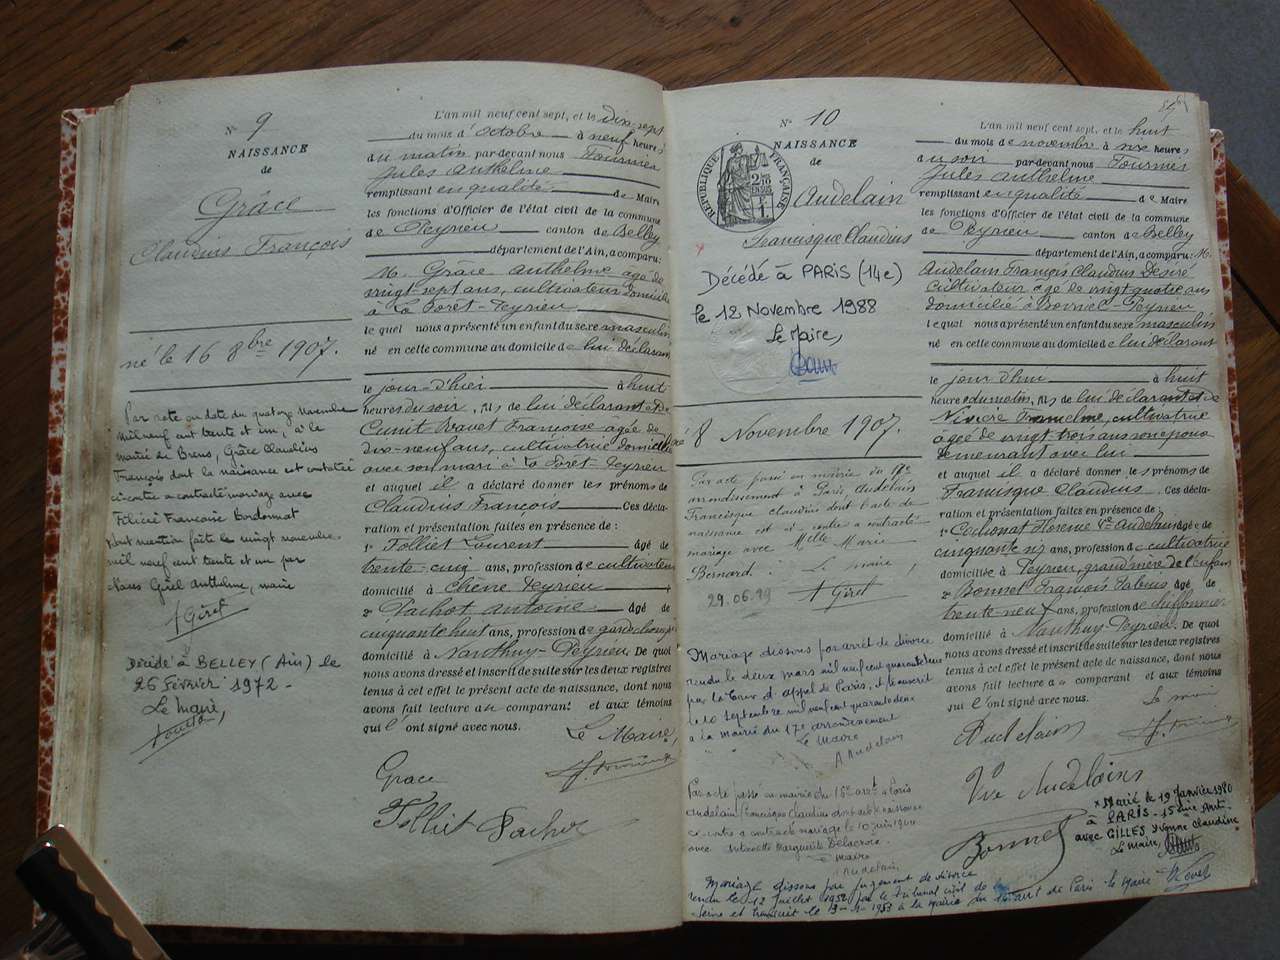 N° 9
NAISSANCE
de
Grâce
Claudius François
né le 16 8bre 1907.
Par acte en date du quatorze Novembre
mil neuf cent trente et un, à la
mairie de Brens, Grâce Claudius
François dont la naissance est constatée
ci-contre a contracté mariage avec
Félicie Françoise Bordonnat
dont mention faite le vingt novembre
mil neuf cent trente et un par
Nous Girel Anthelme, maire
A Girel
Décédé à BELLEY (Ain) le
26 Février 1972 -
Le Maire,
L'an mil neuf cent sept, et le dix-sept
du mois d'octobre à neuf heures
du matin par-devant nous Fournier
Jules Anthelme
remplissant en qualité de Maire
les fonctions d'Officier de l'état civil de la commune
de Peyrieu canton de Belley
département de l'Ain, a comparu :
M. Grâce Anthelme âgé de
vingt-sept ans, cultivateur domicilié
à La Forêt-Peyrieu
lequel nous a présenté un enfant du sexe masculin
né en cette commune au domicile de lui déclarant
le jour d'hier à huit
heures du soir, fils de lui déclarant et de
Cunit Bravet Françoise âgée de
dix-neuf ans, cultivatrice domiciliée
avec son mari à La Forêt-Peyrieu
et auquel il a déclaré donner les prénoms de
Claudius François Ces décla-
ration et présentation faites en présence de :
1° Tolliet Laurent âgé de
trente-cinq ans, profession de cultivateur
domicilié à Chêne Peyrieu
2° Pachot Antoine âgé de
cinquante huit ans, profession de garde champêtre
domicilié à Nanthuy-Peyrieu De quoi
nous avons dressé et inscrit de suite sur les deux registres
tenus à cet effet le présent acte de naissance, dont nous
avons fait lecture au comparant et aux témoins
qui l'ont signé avec nous.
Le Maire,
Grace
J. Fournier
Tolliet Pachot
N° 10
NAISSANCE
de
RÉPUBLIQUE FRANÇAISE
Audelain
Francisque Claudius
Décédé à PARIS (14e)
le 12 Novembre 1988
Le Maire,
né 8 Novembre 1907.
Par acte passé en mairie du 17e
arrondissement à Paris Audelain
Francisque Claudius dont l'acte de
naissance est ci-contre a contracté
mariage avec Melle Marie
Bernard. Le maire,
29.06.29 A Girel
Mariage dissous par arrêt de divorce
rendu le deux mars mil neuf cent quarante deux
par la Cour d'Appel de Paris, et transcrit
le 10 Septembre mil neuf cent quarante deux
à la mairie du 17e arrondissement
Le Maire
A Audelain
Par acte passé en mairie du 15e arrt à Paris
Audelain Francisque Claudius dont l'acte de naissance
ci-contre a contracté mariage le 10 juin 1944
avec Antoinette Marguerite Delacroix
Le Maire
A Audelain
Mariage dissous par jugement de divorce
rendu le 12 Juillet 1952 par le Tribunal civil de la
Seine et transcrit le 13-1-1953 à la Mairie du 15e arrt de Paris. le Maire
L'an mil neuf cent sept, et le huit
du mois de novembre à six heures
du soir par-devant nous Fournier
Jules Anthelme
remplissant en qualité de Maire
les fonctions d'Officier de l'état civil de la commune
de Peyrieu canton de Belley
département de l'Ain, a comparu : M.
Audelain François Claudius Désiré
cultivateur âgé de vingt quatre ans
domicilié à Peyrieu
lequel nous a présenté un enfant du sexe masculin
né en cette commune au domicile de lui déclarant
le jour d'hui à huit
heures du matin, fils de lui déclarant et de
cultivatrice
âgée de vingt trois ans son épouse
demeurant avec lui
et auquel il a déclaré donner les prénoms de
Francisque Claudius. Ces décla-
ration et présentation faites en présence de :
1° Cochonat Florence Ve Audelain âgée de
cinquante six ans, profession de cultivatrice
domiciliée à Peyrieu, grand'mère de l'enfant
2° Bonnet François âgé de
trente-neuf ans, profession de chiffonnier
domicilié à Nanthuy-Peyrieu. De quoi
nous avons dressé et inscrit de suite sur les deux registres
tenus à cet effet le présent acte de naissance, dont nous
avons fait lecture au comparant et aux témoins
qui l'ont signé avec nous.
Le maire
Audelain
J. Fournier
Vve Audelain
Bonnet
Marié le 19 Janvier 1980
à PARIS - 15ème Arrt.
avec GILLES Yvonne Claudine
Le Maire,